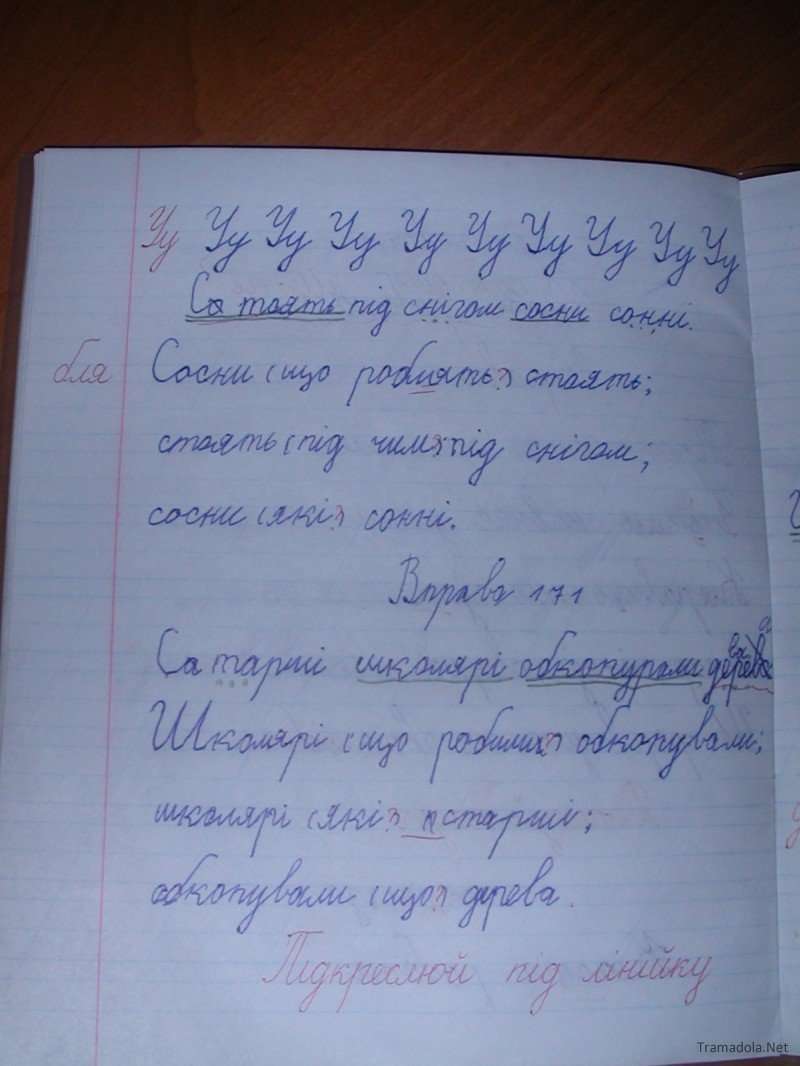 Уу Уу Уу Уу Уу Уу Уу Уу Уу Уу
Стоять під снігом сосни сонні.
бля Сосни (що робиять?) стоять;
стоять (під чим?) під снігом;
сосни (які?) сонні.
Вправа 171
Старші школярі обкопували дерева
Школярі (що робили?) обкопували;
школярі (які?) старші;
обкопували (що?) дерева.
Підкреслюй під лінійку
Tramadola.Net